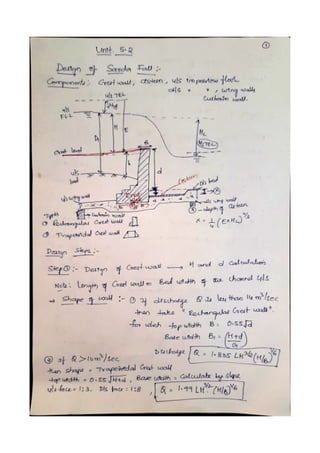 Unit 5.2
①
Design of Sarda Fall :-
Components: Crest wall, cistern, u/s impervious floor
d/s " " , wing walls
Curtain wall.
u/s TEL
u/s
F.S.L
H
E
D₁
HL
D/S TEL
Crest level
B
h
d
u/s
bed
cistern
D/s bed
u/s wing wall
d/s wing wall
Curtain wall
depth of cistern
Types
① Rectangular Crest wall
② Trapezoidal Crest wall
X = 1/4 (E×HL)^2/3
Design Steps:-
Step①:- Design of Crest wall → H and d Calculation
Note: Length of Crest wall = Bed width of the channel u/s
→ Shape of wall :- ① If discharge Q is less than 14 m³/sec
then take "Rectangular Crest wall".
for which top width B = 0.55√d
Base width B₁ = (H+d/G)
Discharge Q = 1.835 LH^3/2 (H/B)^1/6
② If Q > 14 m³/sec
then shape = Trapezoidal Crest wall
top width = 0.55 √H+d , Base width = Calculate by slope
u/s face = 1:3, D/s face = 1:8 , Q = 1.99 LH^3/2 (H/B)^1/6